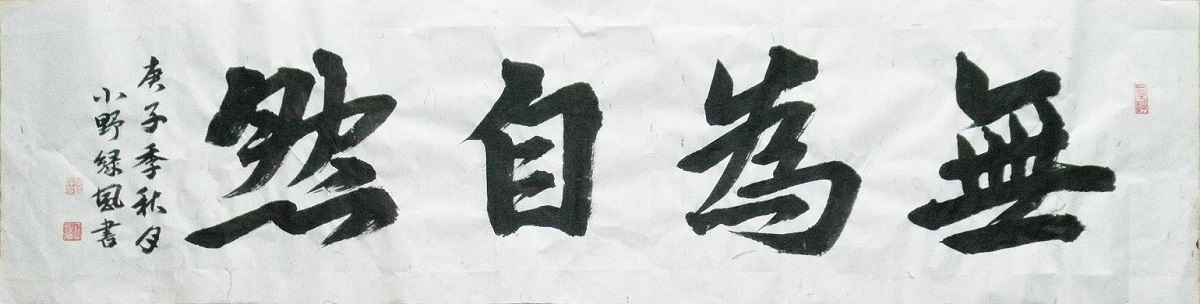 無為自然
庚子季秋月
小野緑風書